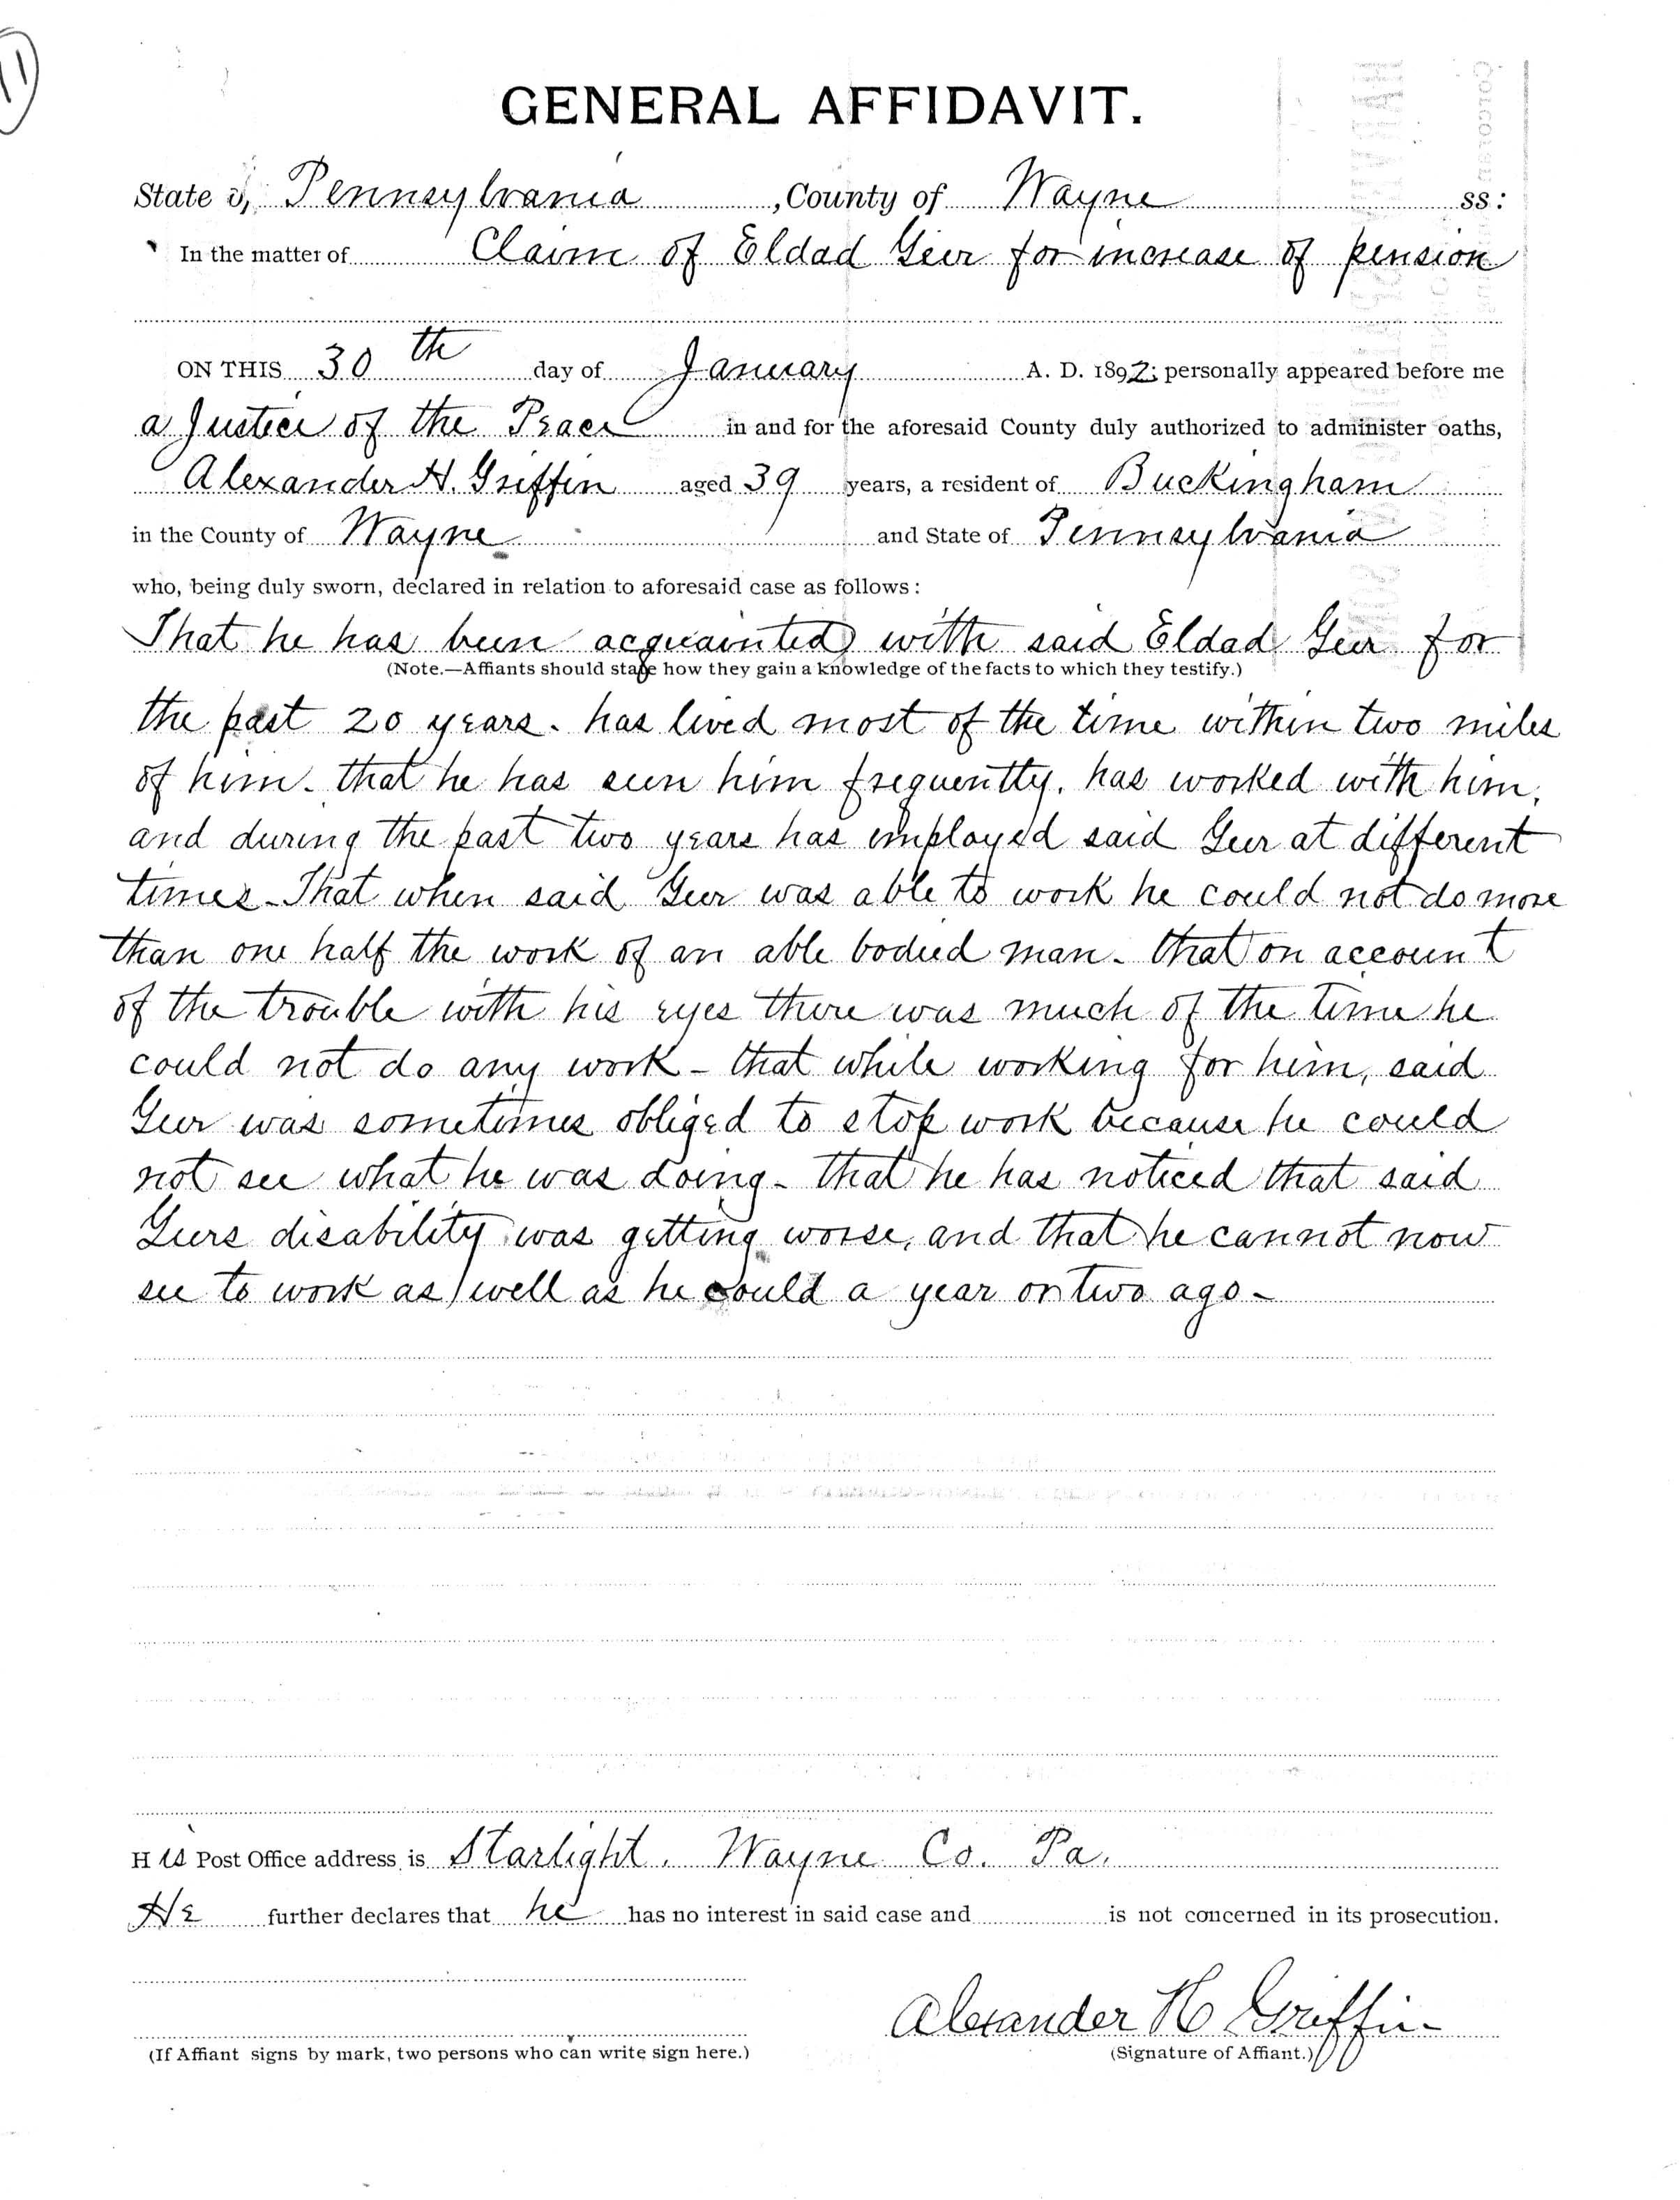 11
GENERAL AFFIDAVIT.
State of, Pennsylvania, County of Wayne ss:
In the matter of Claim of Eldad Geer for increase of pension
ON THIS 30th day of January A. D. 1892; personally appeared before me
a Justice of the Peace in and for the aforesaid County duly authorized to administer oaths,
Alexander H. Griffin aged 39 years, a resident of Buckingham
in the County of Wayne and State of Pennsylvania
who, being duly sworn, declared in relation to aforesaid case as follows:
That he has been acquainted with said Eldad Geer for
(Note.—Affiants should state how they gain a knowledge of the facts to which they testify.)
the past 20 years. has lived most of the time within two miles
of him. that he has seen him frequently. has worked with him,
and during the past two years has employed said Geer at different
times - That when said Geer was able to work he could not do more
than one half the work of an able bodied man. that on account
of the trouble with his eyes there was much of the time he
could not do any work - that while working for him, said
Geer was sometimes obliged to stop work because he could
not see what he was doing - that he has noticed that said
Geers disability was getting worse, and that he cannot now
see to work as well as he could a year or two ago -
His Post Office address is Starlight. Wayne Co. Pa.
He further declares that he has no interest in said case and is not concerned in its prosecution.
Alexander H Griffin
(If Affiant signs by mark, two persons who can write sign here.) (Signature of Affiant.)